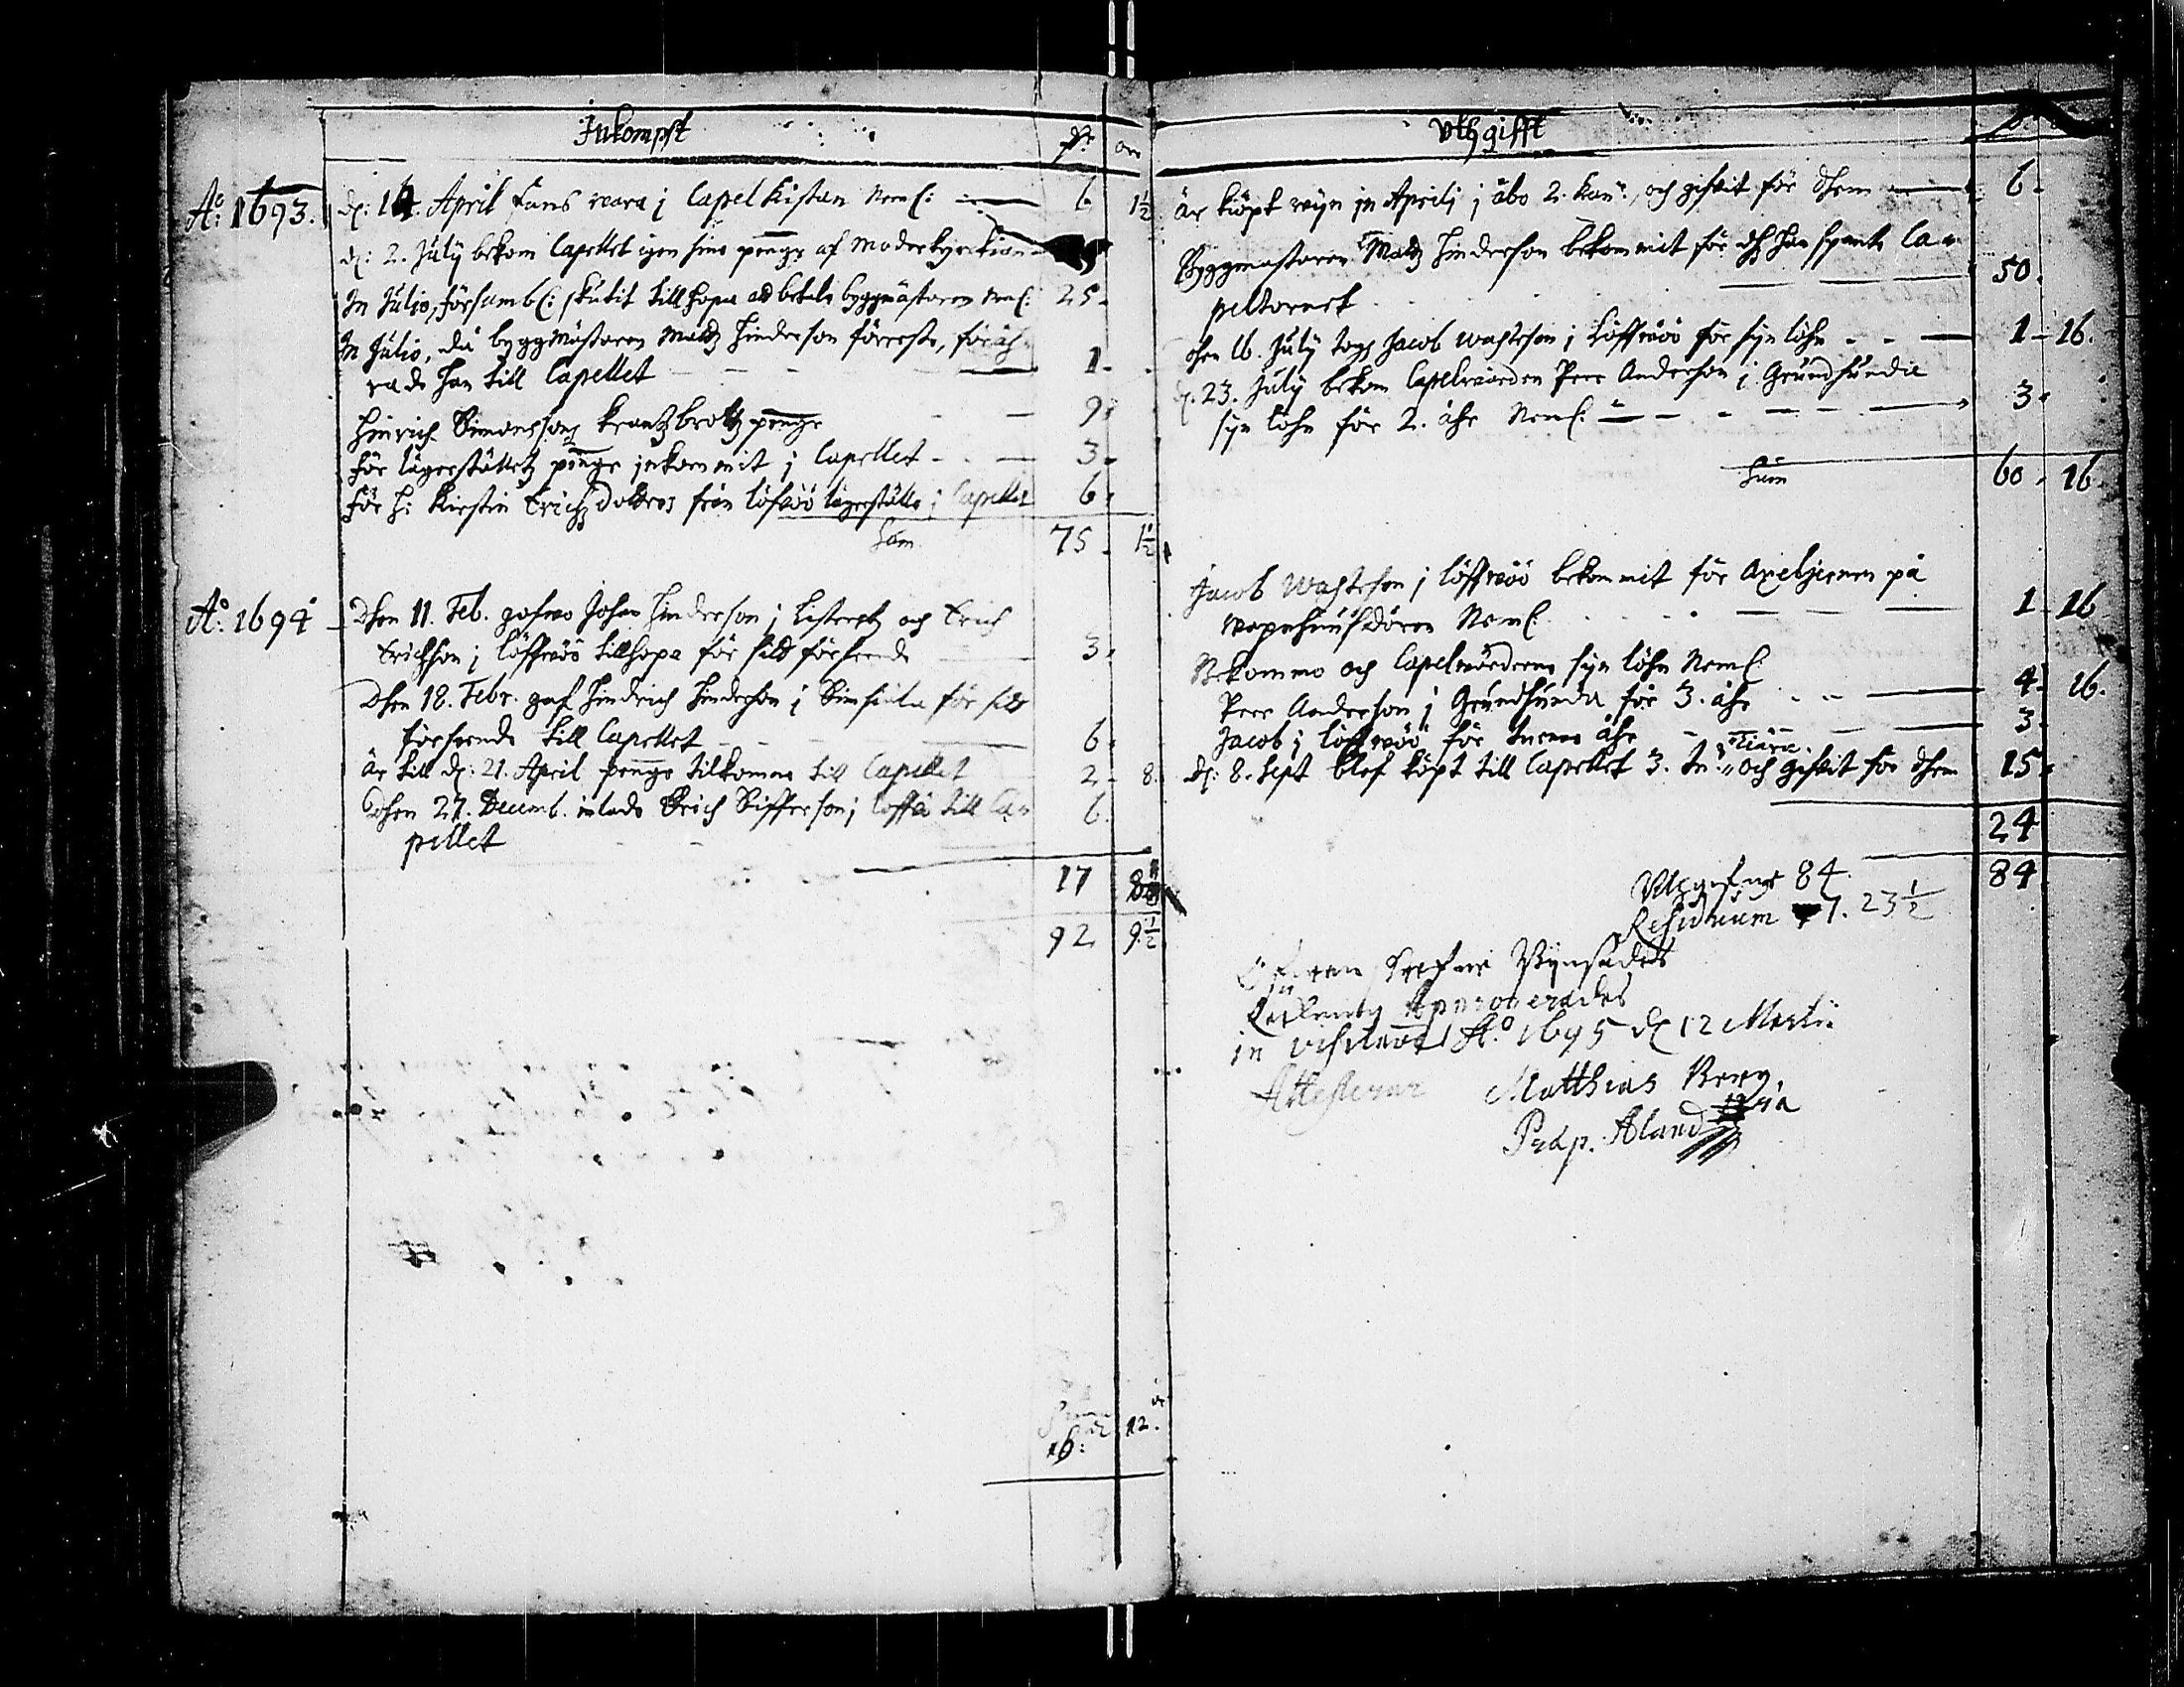 Inkompst
öre
A:o 1693.
d: 14. April fans wara i Capelkistan Neml: 6 1½
d: 2. July bekom Capellet igen sine penge af Moderkyrckian
In Julio, försambl: skutit tillhopa att betala byggmästaren Neml: 25.
In Julio, då byggmästaren Matz Hinderson förreeste, föräh-
rade han till Capellet 1.
Hinrich Simonssons krantzbrottz penge 9
För lägerställetz penge inkommit i Capellet 3.
För H: Kirstin Erichzdotters från löfwöö lägerställe i Capellet 6.
Sum 75. 1½
A:o 1694
Dhen 11. Feb. gofwo Johan Hinderson i och Erich
Erichson i löffwöö tillhopa för sitt förseende 3.
Dhen 18. Febr. gaf Hindrich Hinderson i Simskäla för sitt
förseende till Capellet 6.
Är till d: 21. April penge tilkomne till Capellet 2. 8.
Dhen 27. Decemb. inlade Erich Sifferson i till Ca-
pellet 6.
17 8
92 9½
12.
16:
Vthgifft
är kiöpt wijn in Aprilj i åbo 2. kan:, och gifwit för dhem 6.
Byggmästaren Matz Hinderson bekommit för dhz han spente Ca-
peltornet 50.
dhen 16. July togh Jacob Wachteson i Löffwöö för syn löhn 1 - 16.
d: 23. July bekom Capelwärden Peer Anderson i Grundsunda
syn löhn för 2. åhr Neml: 3.
Sum 60. 16.
Jacob Wachteson i löffwöö bekommit för Axeljernen på
wapnhuusdören Neml: 1 16
Bekommo och Capelwärdarne syn löhn Neml:
Peer Anderson i Grundsunda för 3. åhr 4. 16.
Jacob i löffwöö för åhr 3.
d: 8. Sept blef köpt till Capellet 3. tn: tiära och gifwit för dhem 15.
24
Utgifne 84. 84
Residuum 7. 23½
Approberades
in A:o 1695 d 12 Martii
Attesterar Matthias Berg.
Præp. Aland